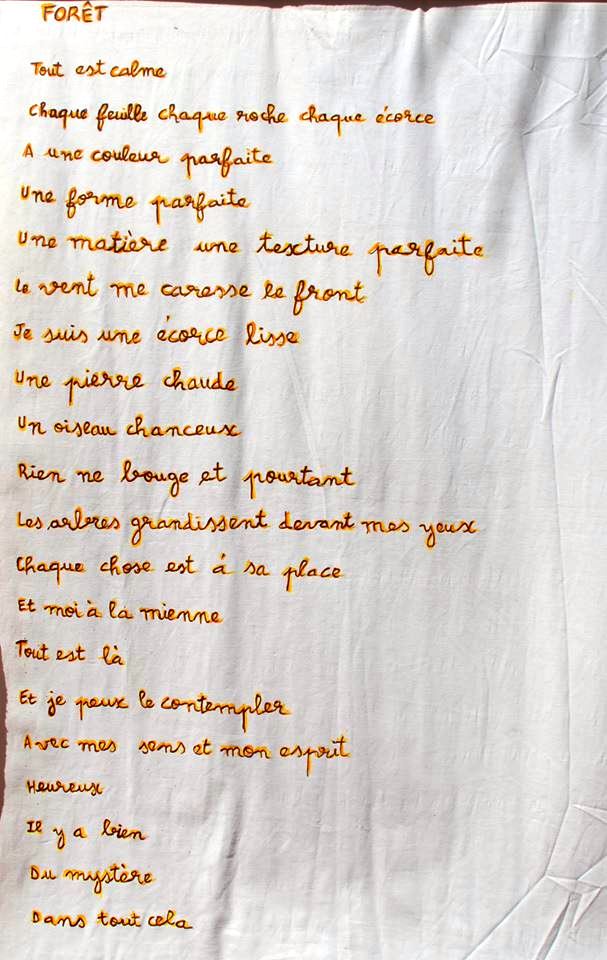 FORÊT
Tout est calme
Chaque feuille chaque roche chaque écorce
A une couleur parfaite
Une forme parfaite
Une matière une texture parfaite
Le vent me caresse le front
Je suis une écorce lisse
Une pierre chaude
Un oiseau chanceux
Rien ne bouge et pourtant
Les arbres grandissent devant mes yeux
Chaque chose est à sa place
Et moi à la mienne
Tout est là
Et je peux le contempler
Avec mes sens et mon esprit
Heureux
Il y a bien
Du mystère
Dans tout cela